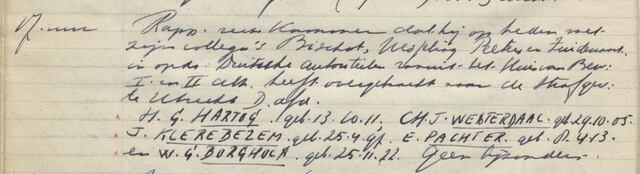 17. uur Rapp. rech. Kammer dat hij op heden met
zijn collega's Bischot, Wespling Peeters en Zuidewant
in opdr. Duitsche autoriteiten vanuit het Huis van Bew.
I en II alh. heeft overgebracht naar de Strafgev.
te Utrecht D. afd.
H. G. HARTOG. geb. 13.10.11, CH. J. WEBTERDAAL geb 29.10.05
J. KLEREBEZEM. geb. 25.4.91 E. PACHTER. geb. 4.13
en W. G. BORGHOLA. geb. 25.11.22. Geen bijzonders.